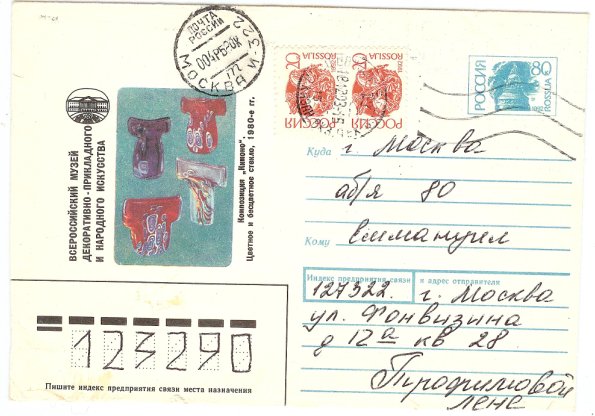 ПОЧТА РОССИИ
МОСКВА И-322
20 20
РОССИЯ РОССИЯ
ROSSIJA ROSSIJA
1992 1992
РОССИЯ
80
ROSSIJA
1992
ВСЕРОССИЙСКИЙ МУЗЕЙ
ДЕКОРАТИВНО-ПРИКЛАДНОГО
И НАРОДНОГО ИСКУССТВА
Композиция „Кимоно“.
Цветное и бесцветное стекло, 1980-е гг.
Куда г. Москва
аб/я 80
Кому Еммануил
Индекс предприятия связи и адрес отправителя
127322. г. Москва
ул. Фонвизина
д 12а кв 28
Трофимовой
Лене
123290
Пишите индекс предприятия связи места назначения